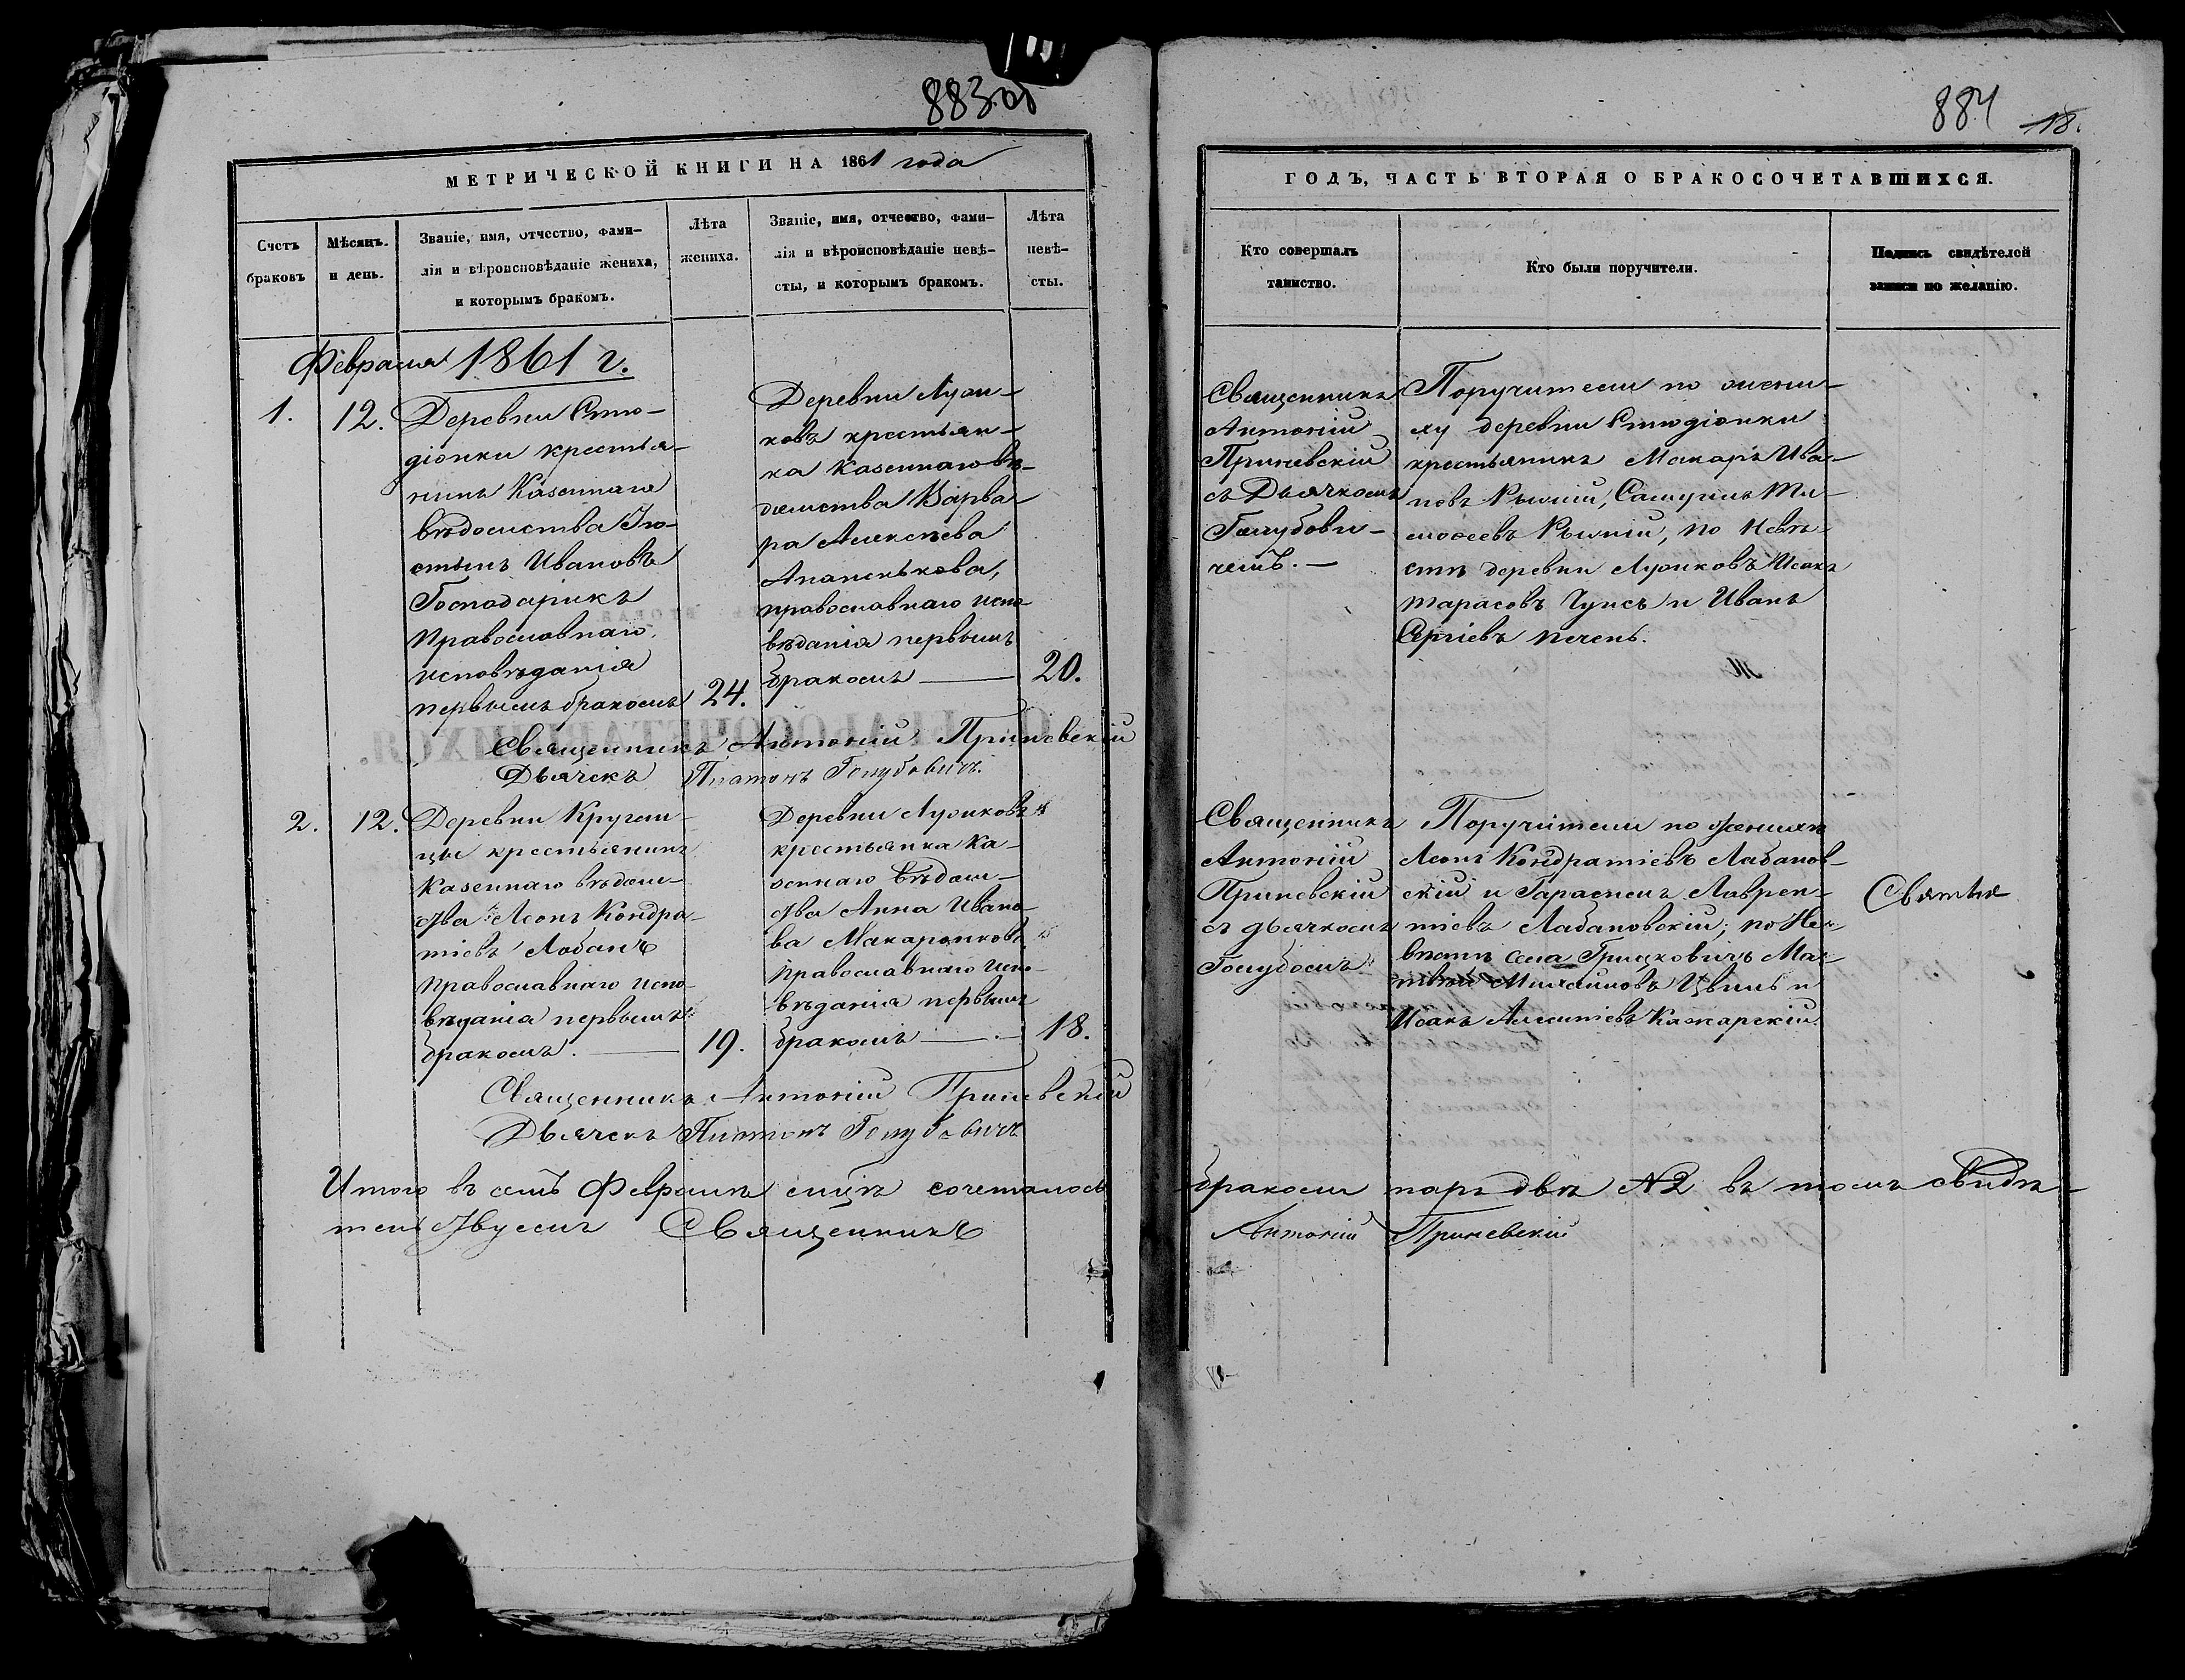 883 об
МЕТРИЧЕСКОЙ КНИГИ НА 1861 года
Счетъ
браковъ
Мѣсяцъ.
и день.
Званіе, имя, отчество, фами-
лія и вѣроисповѣданіе жениха,
и которымъ бракомъ.
Лѣта
жениха.
Званіе, имя, отчество, фами-
лія и вѣроисповѣданіе невѣ-
сты, и которымъ бракомъ.
Лѣта
невѣ-
сты.
Февраля 1861 г.
1.
12.
Деревни Стю-
діонки крестья-
нинъ Казеннаго
вѣдомства Ію-
стинъ Ивановъ
Господарикъ
Православнаго
исповѣданія
первымъ бракомъ
24.
Деревни Луни-
ковъ крестьян-
ка казеннаго вѣ-
домства Варва-
ра Алексѣева
Апанькова,
православнаго испо-
вѣданія первымъ
бракомъ
20.
Священникъ Антоній Приневскій
Дьячекъ Платонъ Голубовичъ.
2.
12.
Деревни Кругли-
цы крестьянинъ
Казеннаго вѣдом-
ства Леонъ Кондра-
тіевъ Лобанъ
Православнаго испо-
вѣданія первымъ
бракомъ.
19.
Деревни Луниковъ
крестьянка Ка-
зеннаго вѣдом-
ства Анна Ивано-
ва Макаронковъ
Православнаго испо-
вѣданія первымъ
бракомъ
18.
Священникъ Антоній Приневскій
Дьячекъ Платонъ Голубовичъ
Итого въ семъ Февралѣ мцѣ сочеталось
тель двумъ Священникъ
884 18.
ГОДЪ, ЧАСТЬ ВТОРАЯ О БРАКОСОЧЕТАВШИХСЯ.
Кто совершалъ
таинство.
Кто были поручители.
Подпись свидѣтелей
записи по желанію.
Священникъ
Антоній
Приневскій
съ Дьячкомъ
Голубови-
чемъ.
Поручители по жени-
ху деревни Стюдіонки
крестьянинъ Макаръ Ива-
новъ Рымшій, Самуилъ Ти-
мофеевъ Рымшій, по Невѣ-
стѣ деревни Луниковъ Исакъ
Тарасовъ Чуисъ и Иванъ
Сергіевъ Печень.
Священникъ
Антоній
Приневскій
съ дьячкомъ
Голубомъ
Поручители по женихѣ
Леонъ Кондратіевъ Лабанов-
скій и Гарасимъ Лаврен-
тіевъ Лабановскій; по Не-
вѣстѣ села Грицковичъ Мат-
твей Михайловъ Цвиль и
Исакъ Алексіевъ Кажарскій.
бракомъ паръ двѣ №2 въ томъ свидѣ-
Антоній Приневскій